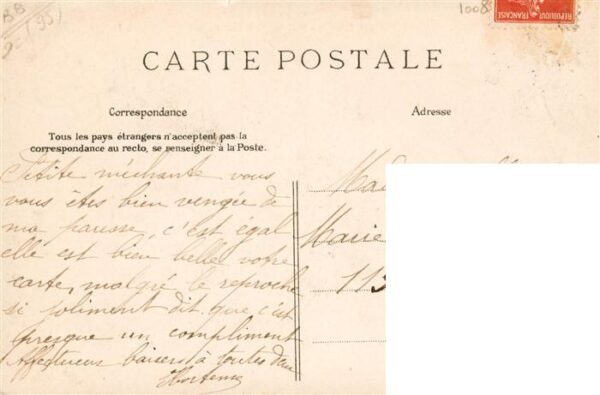 1008
REPUBLIQUE FRANÇAISE
CARTE POSTALE
Correspondance
Adresse
Tous les pays étrangers n'acceptent pas la
correspondance au recto, se renseigner à la Poste.
Petite méchante vous
vous êtes bien vengée de
ma paresse, c'est égal
elle est bien belle votre
carte, malgré le reproche
si joliment dit que c'est
presque un compliment
Affectueux baisers à toutes deux
Hortense
Marie
113